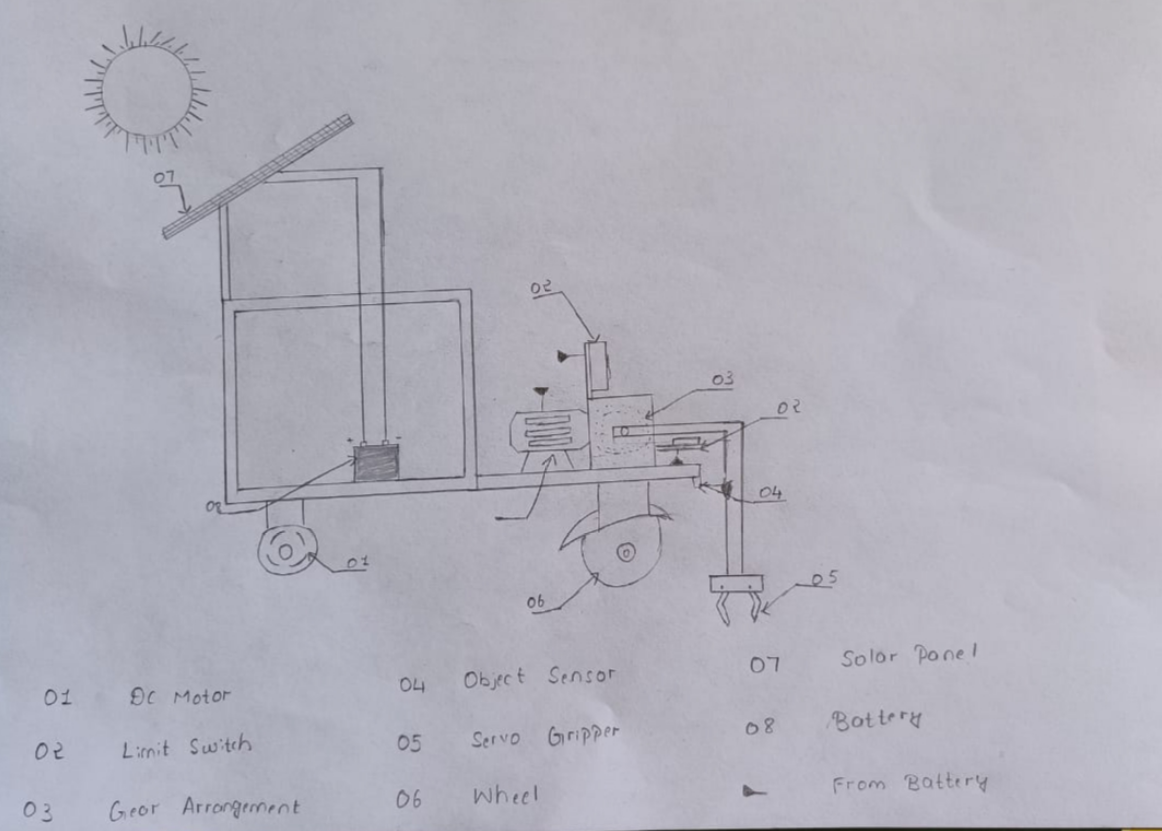 07
02
03
02
04
08
01
05
06
01 DC Motor
02 Limit Switch
03 Gear Arrangement
04 Object Sensor
05 Servo Gripper
06 Wheel
07 Solar Panel
08 Battery
From Battery